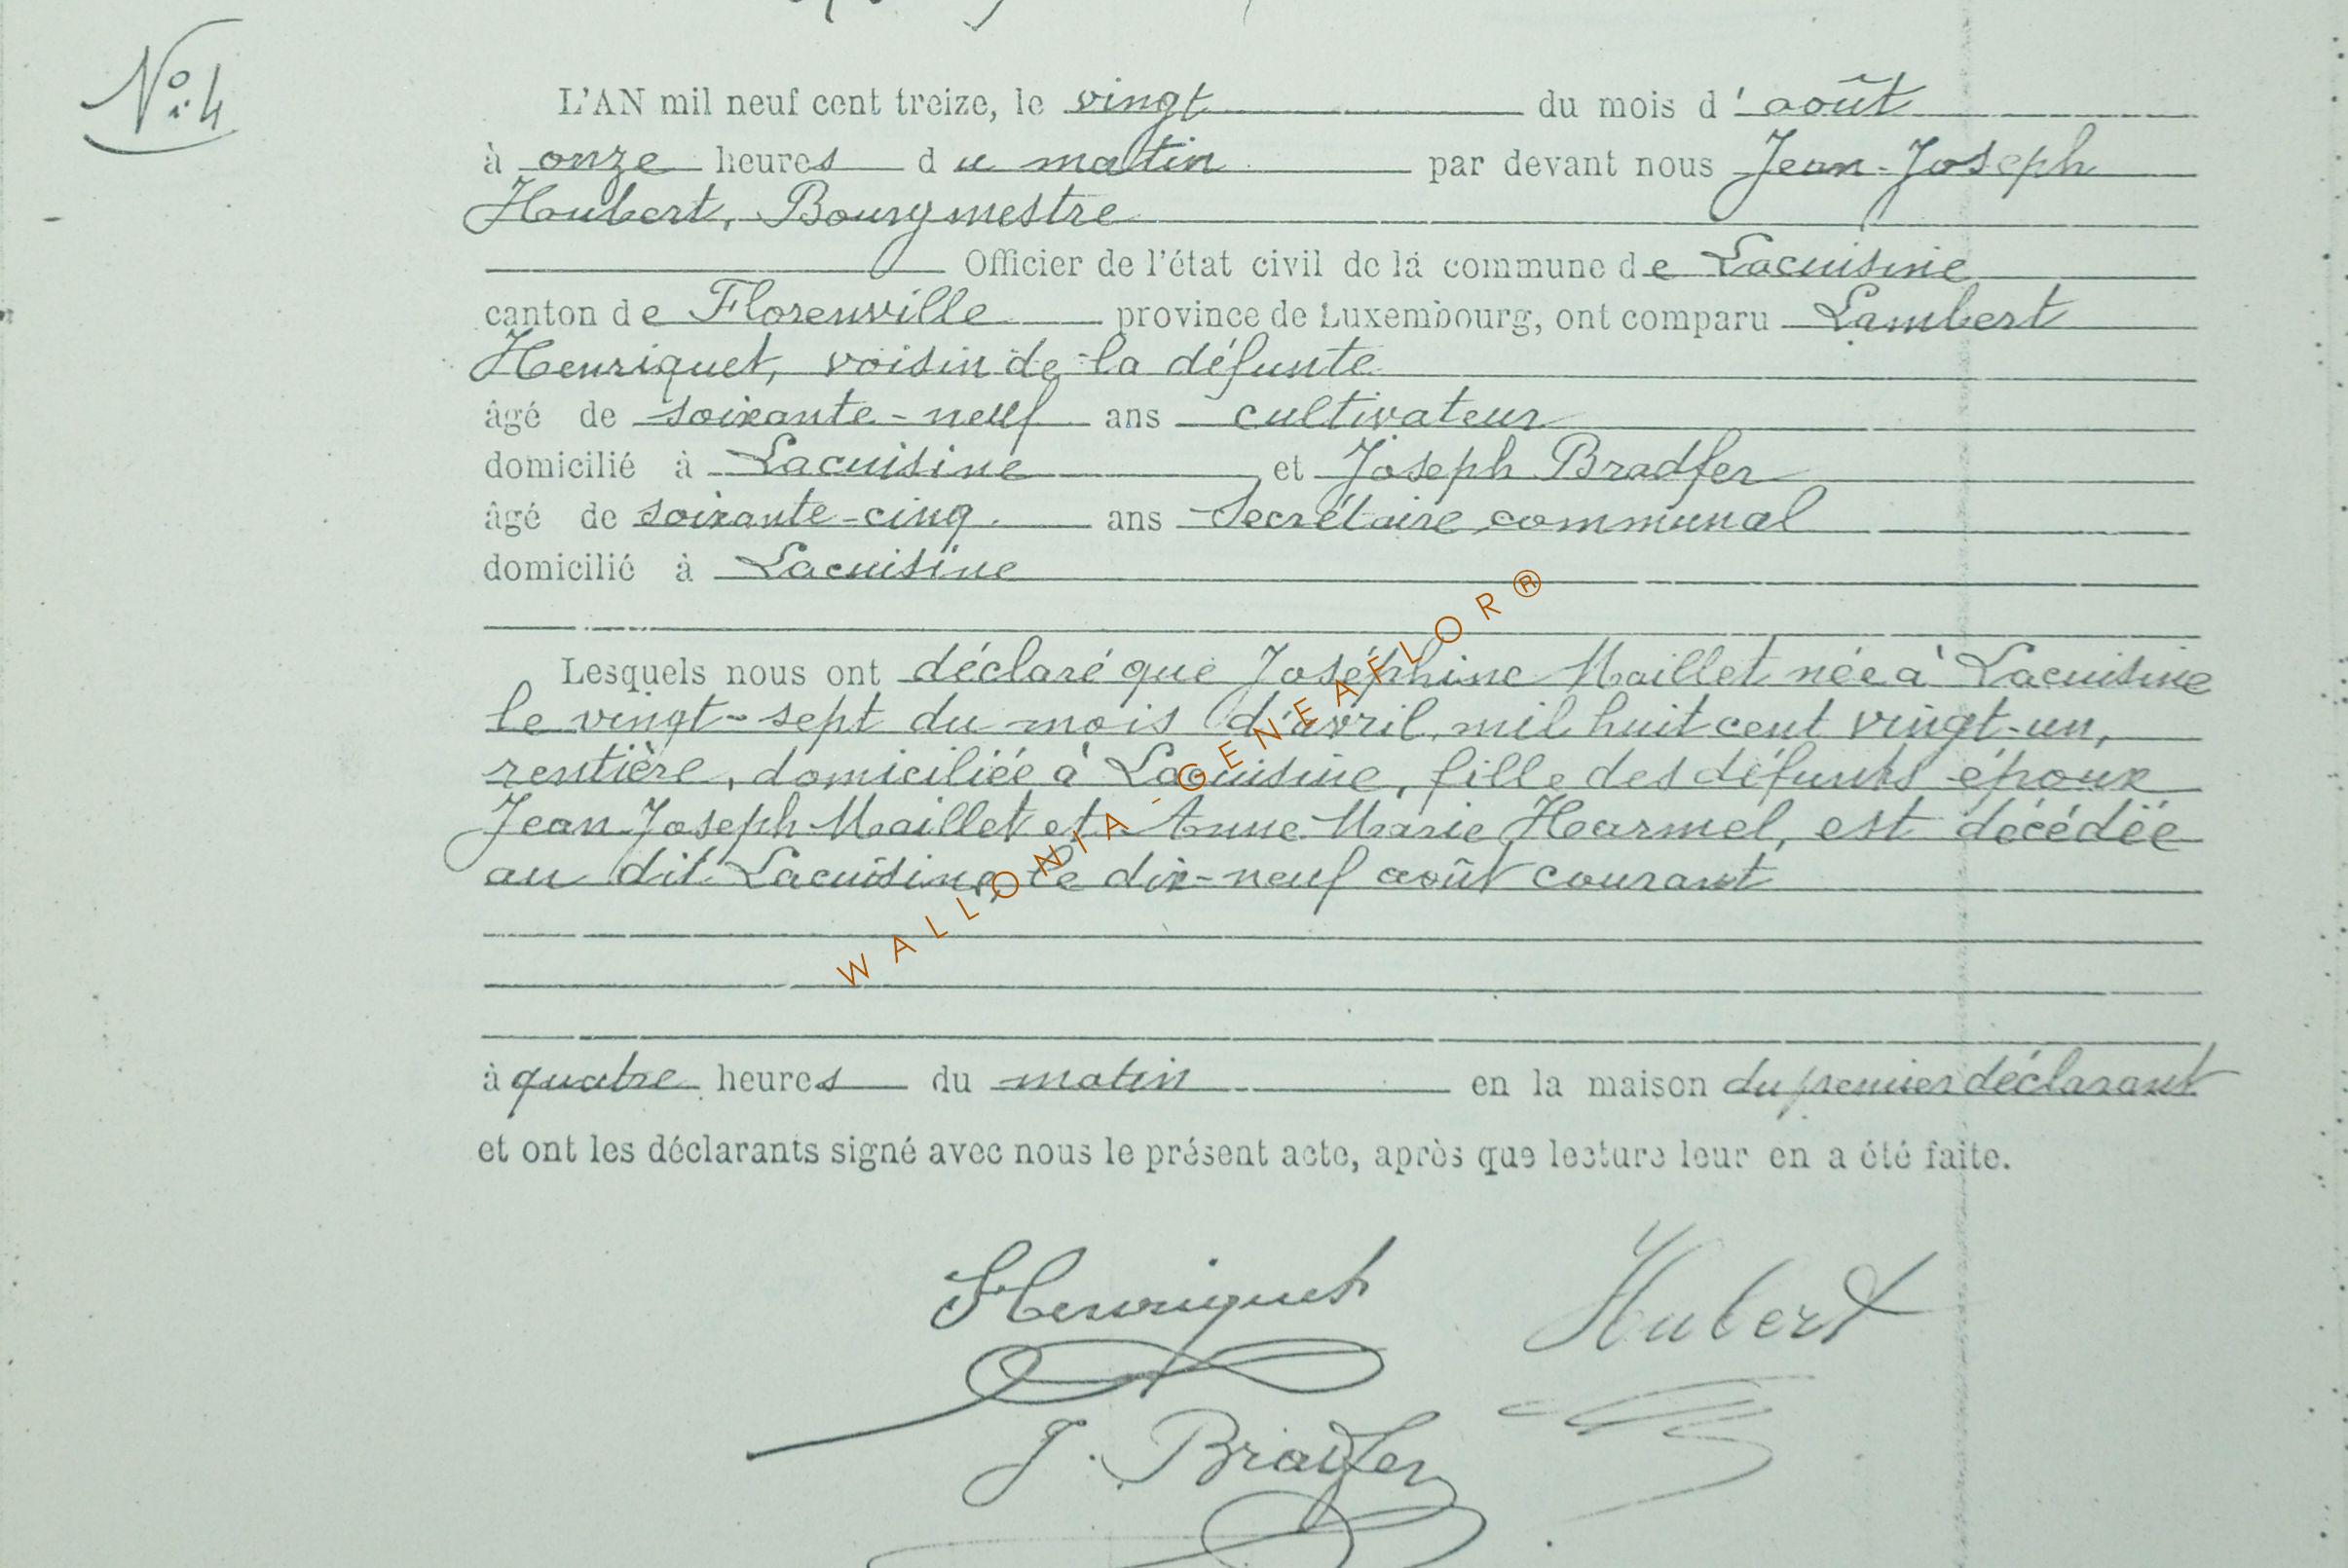 N° 4
L'AN mil neuf cent treize, le vingt du mois d'août
à onze heures du matin par devant nous Jean-Joseph
Hubert, Bourgmestre
Officier de l'état civil de la commune de Lacuisine
canton de Florenville province de Luxembourg, ont comparu Lambert
Henriquet, voisin de la défunte
âgé de soixante-neuf ans cultivateur
domicilié à Lacuisine et Joseph Bradfer
âgé de soixante-cinq ans Secrétaire communal
domicilié à Lacuisine
Lesquels nous ont déclaré que Joséphine Maillet née à Lacuisine
le vingt-sept du mois d'avril mil huit cent vingt-un,
rentière, domiciliée à Lacuisine, fille des défunts époux
Jean Joseph Maillet et Anne Marie Harmel, est décédée
au dit Lacuisine, le dix-neuf août courant
à quatre heures du matin en la maison du premier déclarant
et ont les déclarants signé avec nous le présent acte, après que lecture leur en a été faite.
Henriquet Hubert
J. Bradfer
WALLONIA - GENEAFLOR®